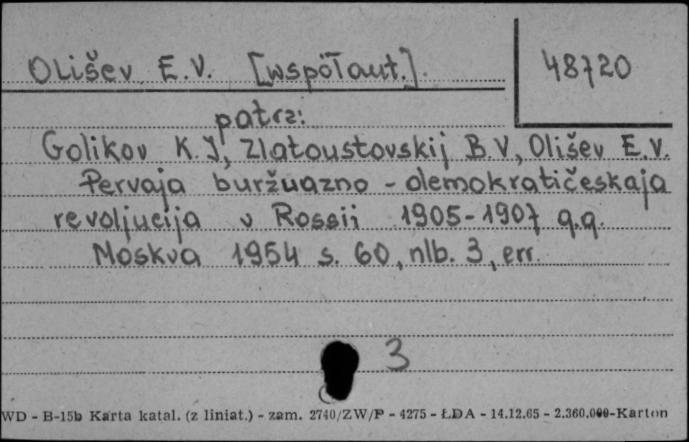 Olišev E.V. [współaut.].
48720
patrz:
Golikov K.J, Zlatoustovskij B.V, Olišev E.V.
Pervaja buržuazno - demokratičeskaja
revoljucija v Rossii 1905-1907 g.g.
Moskva 1954 s. 60, nlb. 3, err.
3
WD - B-15b Karta katal. (z liniat.) - zam. 2740/ZW/P - 4275 - ŁDA - 14.12.65 - 2.360.000-Karton